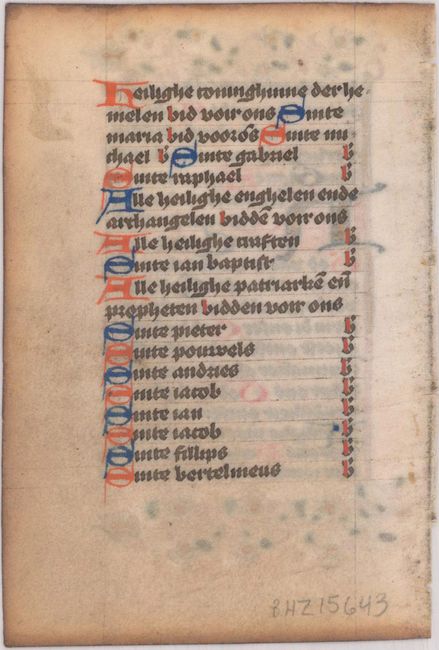 Heilighe coninghinne der he-
melen bid voir ons Sinte
maria bid voor ōs Sinte mi
chael b Sinte gabriel b
Sinte raphael b
Alle heilighe enghelen ende
archangelen biddē voir ons
Alle heilighe crachten b
Sinte ian baptist b
Alle heilighe patriarkē eñ
propheten bidden voir ons
Sinte pieter b
Sinte pouwels b
Sinte andries b
Sinte iacob b
Sinte ian b
Sinte iacob b
Sinte fillips b
Sinte bertelmeus b
8HZ15643